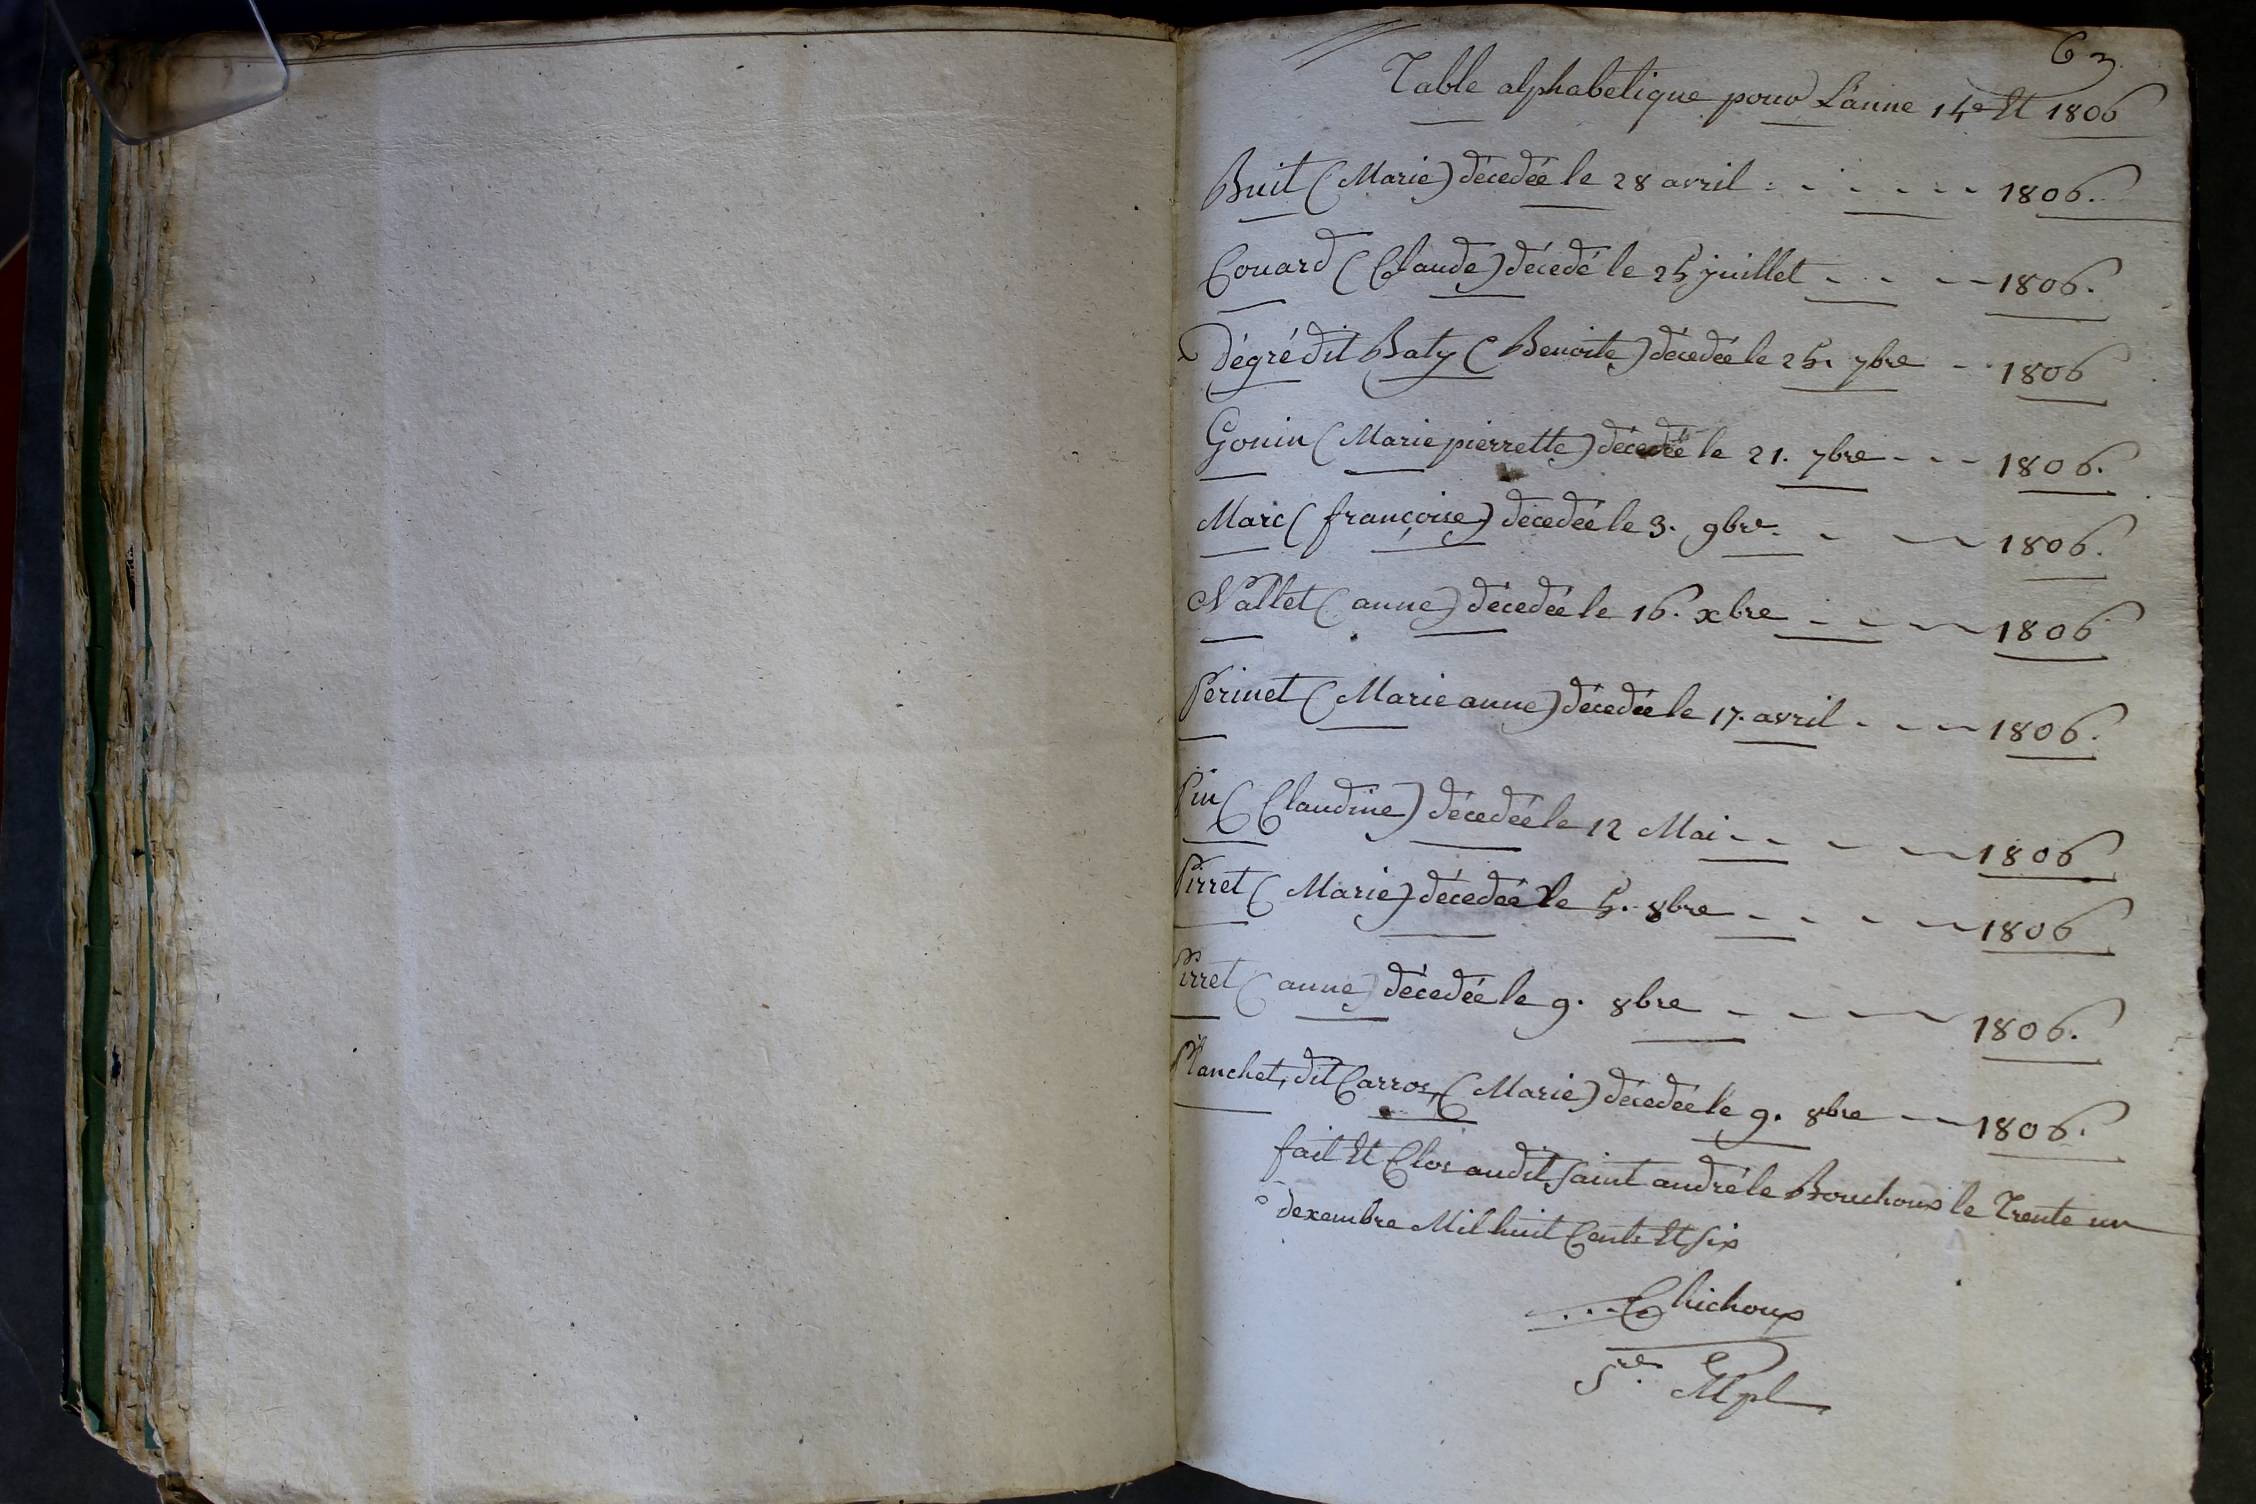 63.
Table alphabetique pour L'anne 14e Et 1806
Buit (Marie) décedée le 28 avril - - - - - 1806.
Couard (Claude) décedé le 25 juillet - - - 1806.
Dégré dit Baty (Benoite) décedée le 25. 7bre - 1806
Gonin (Marie pierrette) décedée le 21. 7bre - - - 1806.
Marc (françoise) décedée le 3. 9bre. - - 1806.
Nallet (anne) décedée le 16. xbre - - - 1806
Perinet (Marie anne) décedée le 17. avril - - - 1806.
Pin (Claudine) décedée le 12 Mai - - - - 1806
Pirret (Marie) décedée le 5. 8bre - - - - 1806
Pirret (anne) décedée le 9. 8bre - - - 1806.
Planchet, dit Carros, (Marie) décedée le 9. 8bre - - 1806.
fait Et Clos audit Saint andré le Bouchoux le Trente un
dexembre Mil huit Cents Et six
Chichoux
Sre. Mpl